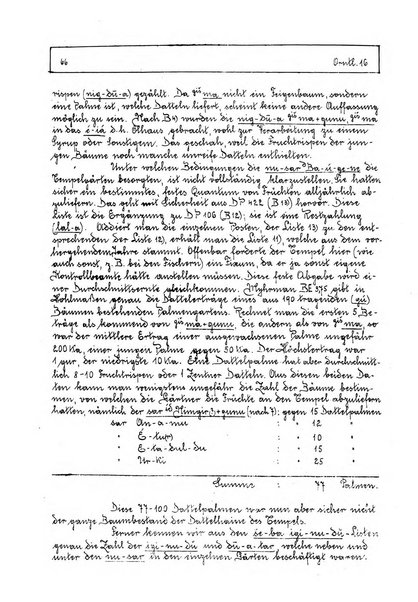 66 Orntl. 16
rispen (nig-dū-a) gezählt. Da gišma nicht ein Feigenbaum, sondern
eine Palme ist, welche Datteln liefert, scheint keine andere Auffassung
möglich zu sein. Nach B4) wurden die nig-dū-a gišma+gunu, gišma
in das é-ià d.h. Ölhaus gebracht, wohl zur Verarbeitung zu einem
Syrup oder sonstigem. Das geschah, weil die Fruchtrispen der jun-
gen Bäume noch manche unreife Datteln enthielten.
Unter welchen Bedingungen die nu-sar Ba-ú-ge-ne die
Tempelgärten besorgten, ist nicht vollständig klarzustellen. Sie hatten
sicher ein bestimmtes, festes Quantum von Früchten alljährlich ab-
zuliefern. Das geht mit Sicherheit aus DP 422 (B 13) hervor. Diese
Liste ist die Ergänzung zu DP 106 (B 12); sie ist eine Restzahlung
(lal-a). Addiert man die einzelnen Posten, der Liste 13) zu den ent-
sprechenden der Liste 12), erhält man die Liste 11), welche aus dem vor-
hergehenden Jahre stammt. Offenbar fordert der Tempel hier (wie
auch sonst, z. B. bei den Fischern) ein Fixum, da er ja sonst eigene
Kontrollbeamte hätte anstellen müssen. Diese feste Abgabe wird ei-
ner Durchschnittsernte gleichkommen. Myhrman BE 3,75 gibt in
Hohlmaßen genau die Dattelerträge eines aus 190 tragenden (gú)
Bäumen bestehenden Palmengartens. Rechnet man die ersten 5 Be-
träge als kommend von gišma+gunu, die andern als von gišma, so
war der mittlere Ertrag einer ausgewachsenen Palme ungefähr
200 Ka, einer jungen Palme gegen 50 Ka. Der Höchstertrag war
1 gur, der niedrigste 10 Ka. Eine Dattelpalme hat aber durchschnitt-
lich 8-10 Fruchtrispen oder 1 Zentner Datteln. Aus diesen beiden Da-
ten kann man wenigstens ungefähr die Zahl der Bäume bestim-
men, von welchen die Gärtner die Früchte an den Tempel abzuliefern
hatten, nämlich der sar gunu (nach 7): gegen 15 Dattelpalmen
" sar An-a-nu : " 12 "
" É-tu(r) : " 10 "
" É-ta-dul-du : " 15 "
" Ur-ki : " 25 "
Summe : 77 Palmen.
Diese 77-100 Dattelpalmen war nun aber sicher nicht
der ganze Baumbestand der Dattelhaine des Tempels.
Ferner kennen wir aus den še-ba igi-nu-dū-Listen
genau die Zahl der igi-nu-dū und dū-a-tar, welche neben und
unter den nu-sar in den einzelnen Gärten beschäftigt waren.